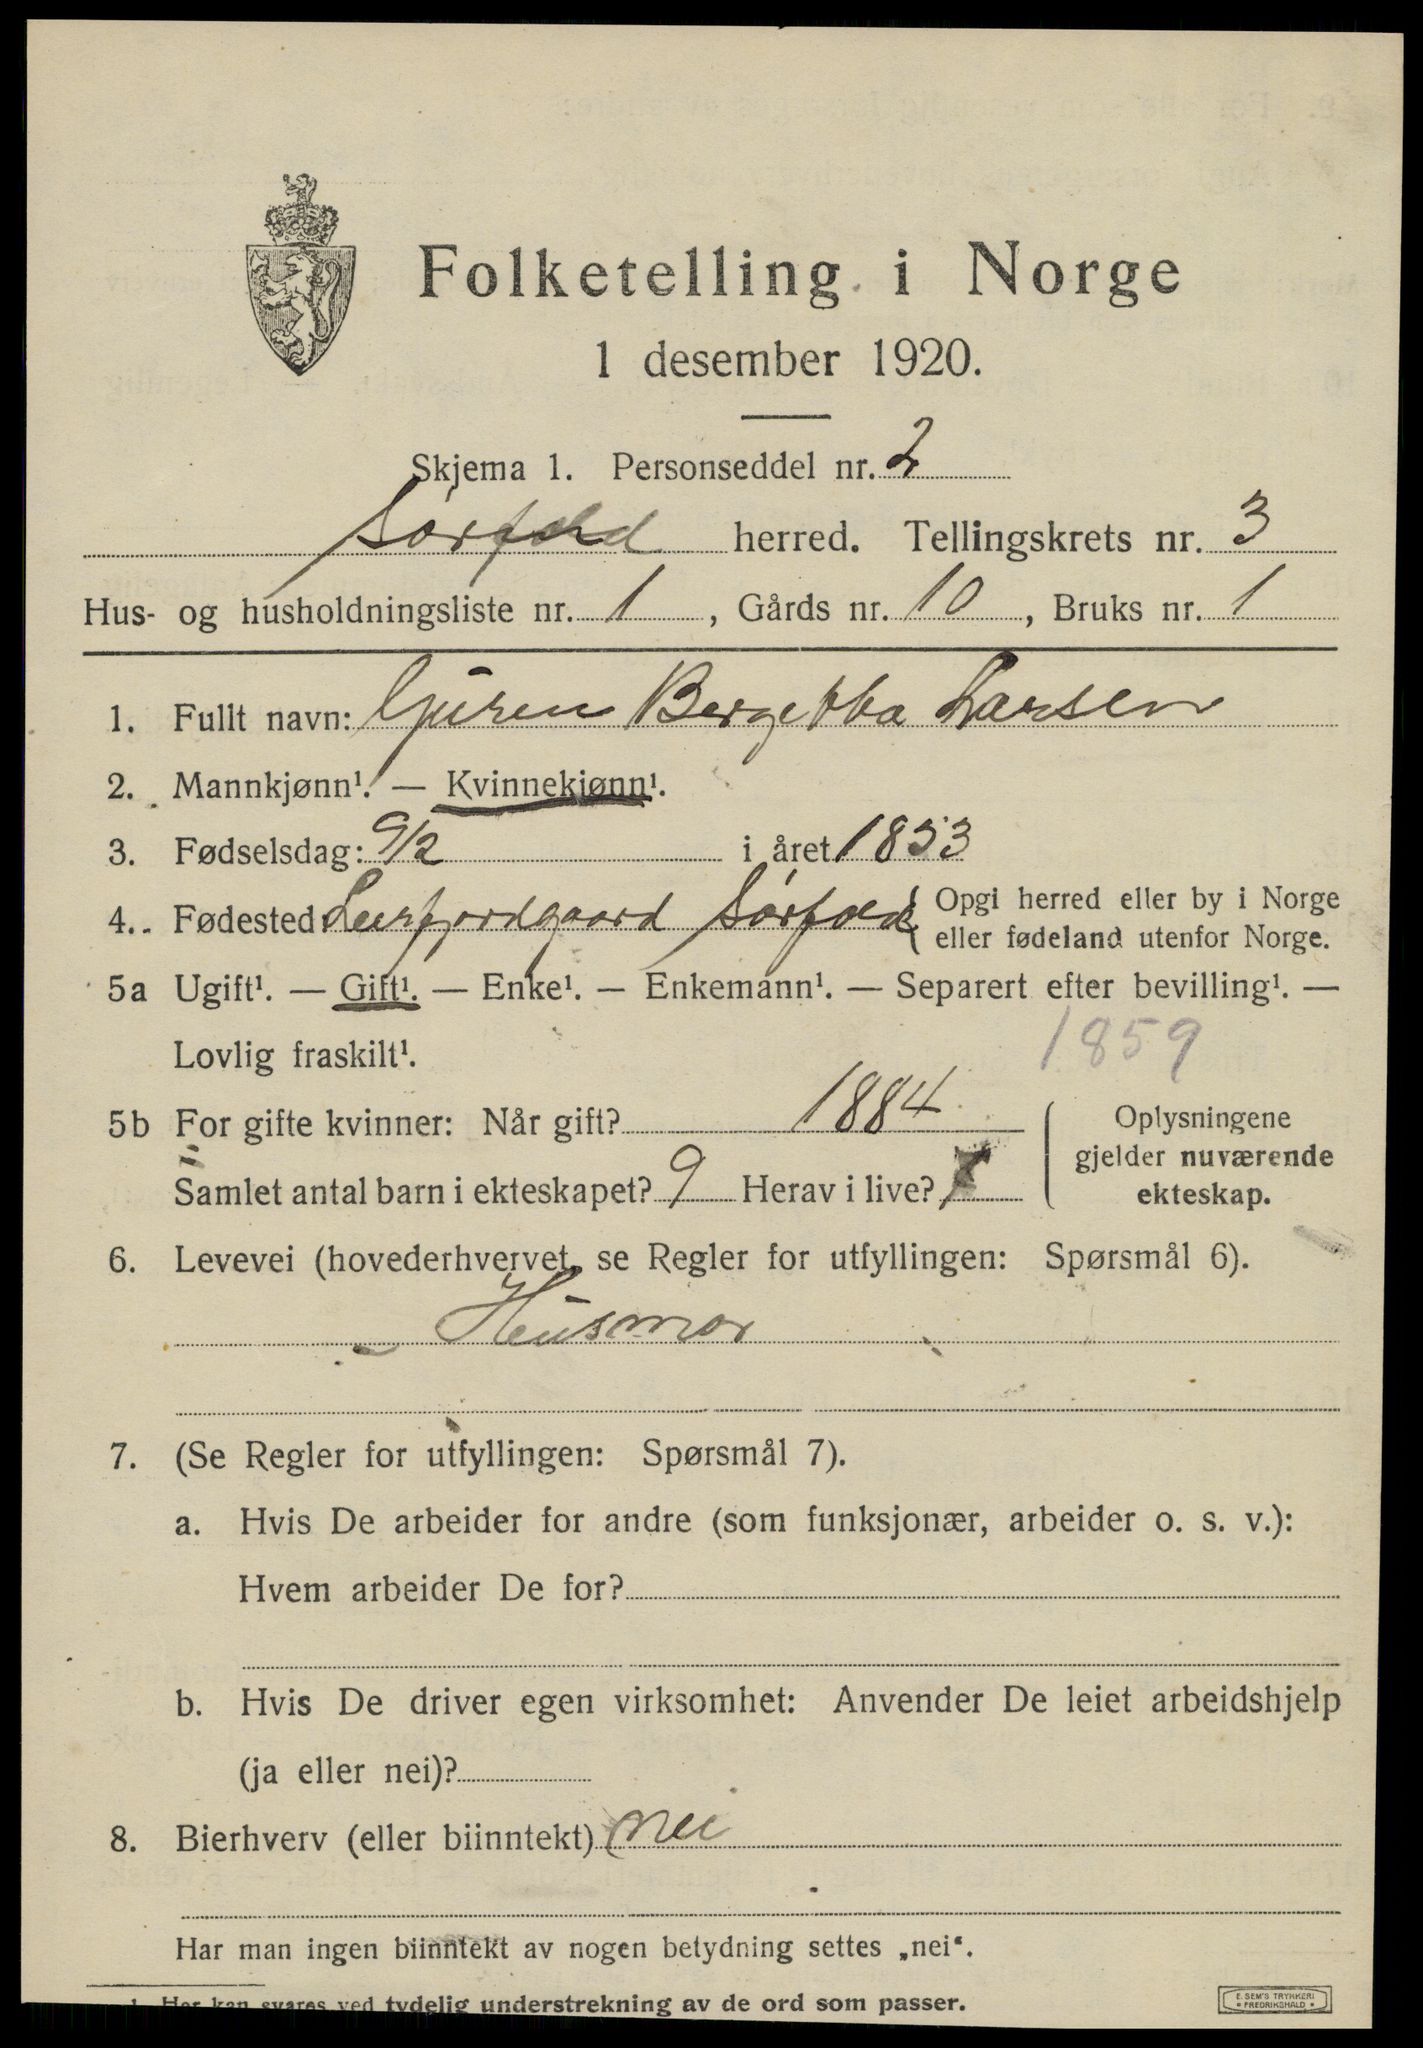 Folketelling i Norge
1 desember 1920.
Skjema 1. Personseddel nr. 2
Sørfold herred. Tellingskrets nr. 3
Hus- og husholdningsliste nr. 1, Gårds nr. 10, Bruks nr. 1
1. Fullt navn: Guren Bergetha Larsen
2. Mannkjønn¹. — Kvinnekjønn¹.
3. Fødselsdag: 9/2 i året 1853
4. Fødested Leirfjordgaard Sørfold { Opgi herred eller by i Norge
eller fødeland utenfor Norge.
5a Ugift¹. — Gift¹. — Enke¹. — Enkemann¹. — Separert efter bevilling¹. —
Lovlig fraskilt¹. 1859
5b For gifte kvinner: Når gift? 1884
Samlet antal barn i ekteskapet? 9 Herav i live?
Oplysningene
gjelder nuværende
ekteskap.
6. Levevei (hovederhvervet, se Regler for utfyllingen: Spørsmål 6).
Husmor
7. (Se Regler for utfyllingen: Spørsmål 7).
a. Hvis De arbeider for andre (som funksjonær, arbeider o. s. v.):
Hvem arbeider De for?
b. Hvis De driver egen virksomhet: Anvender De leiet arbeidshjelp
(ja eller nei)?
8. Bierhverv (eller biinntekt) nei
Har man ingen biinntekt av nogen betydning settes „nei“.
1 Her kan svares ved tydelig understrekning av de ord som passer.
E. SEM'S TRYKKERI
FREDRIKSHALD